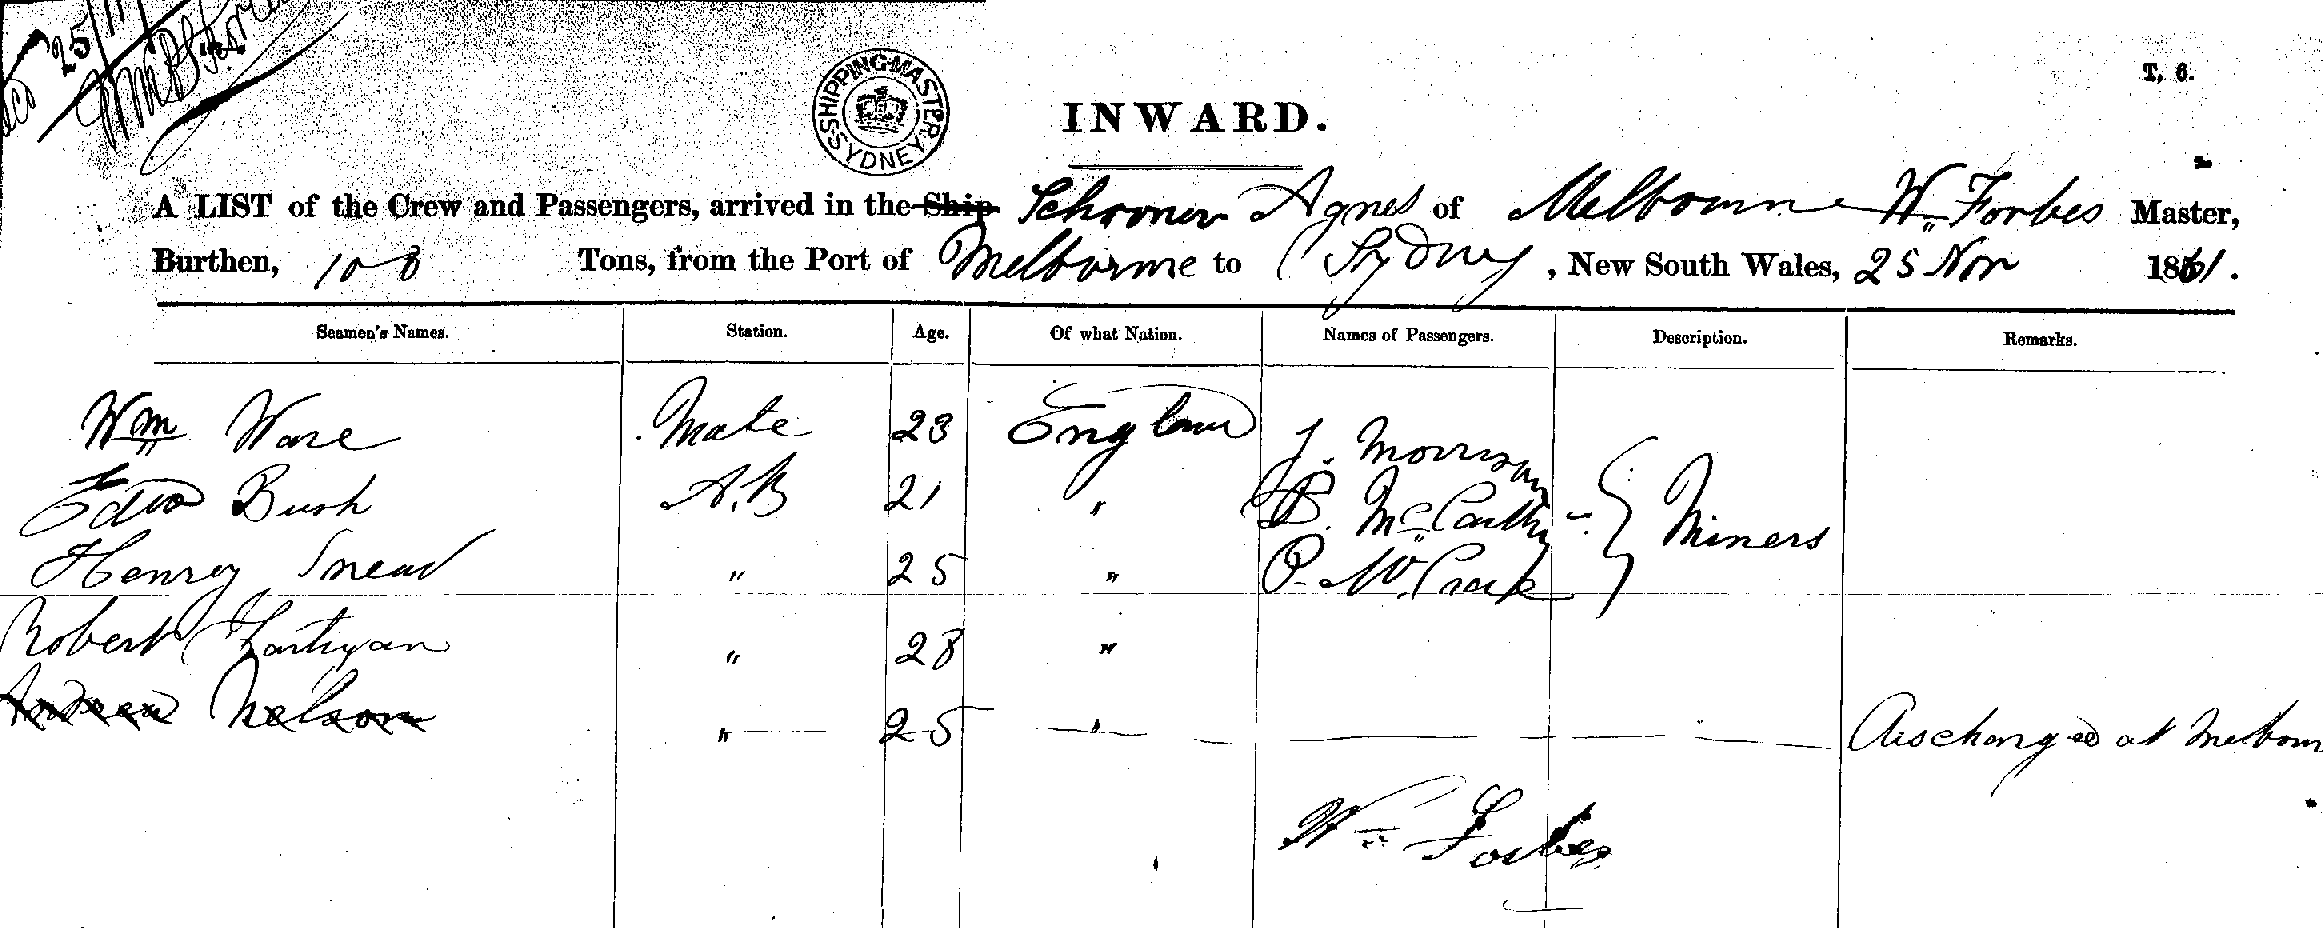 25/11
T. 6.
SHIPPING MASTER SYDNEY
INWARD.
A LIST of the Crew and Passengers, arrived in the Ship Schooner Agnes of Melbourne Wm Forbes Master,
Burthen, 108 Tons, from the Port of Melbourne to Sydney, New South Wales, 25 Nov 1861.
Seamen's Names. Station. Age. Of what Nation. Names of Passengers. Description. Remarks.
Wm Ware Mate 23 England J. Morrison
Edwd Bush A.B 21 " B. McCarthy Miners
Henry Snead " 25 " P. McCrack
Robert Hartigan " 28 "
Andrew Nelson " 25 " Discharged at Melbourn
Wm Forbes